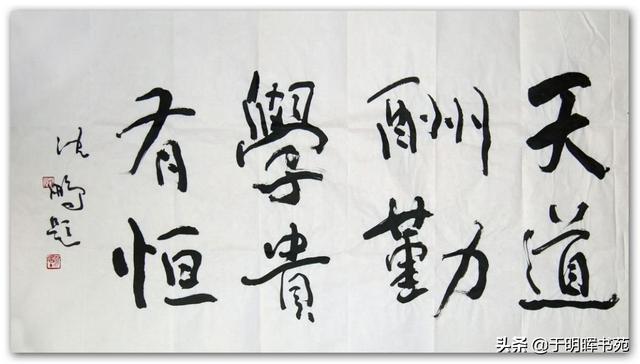 天道
酬勤
學貴
有恒
沈鹏题
头条 @于明晖书苑